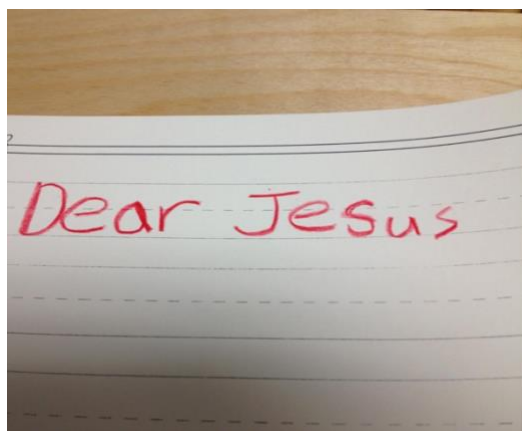 Dear Jesus